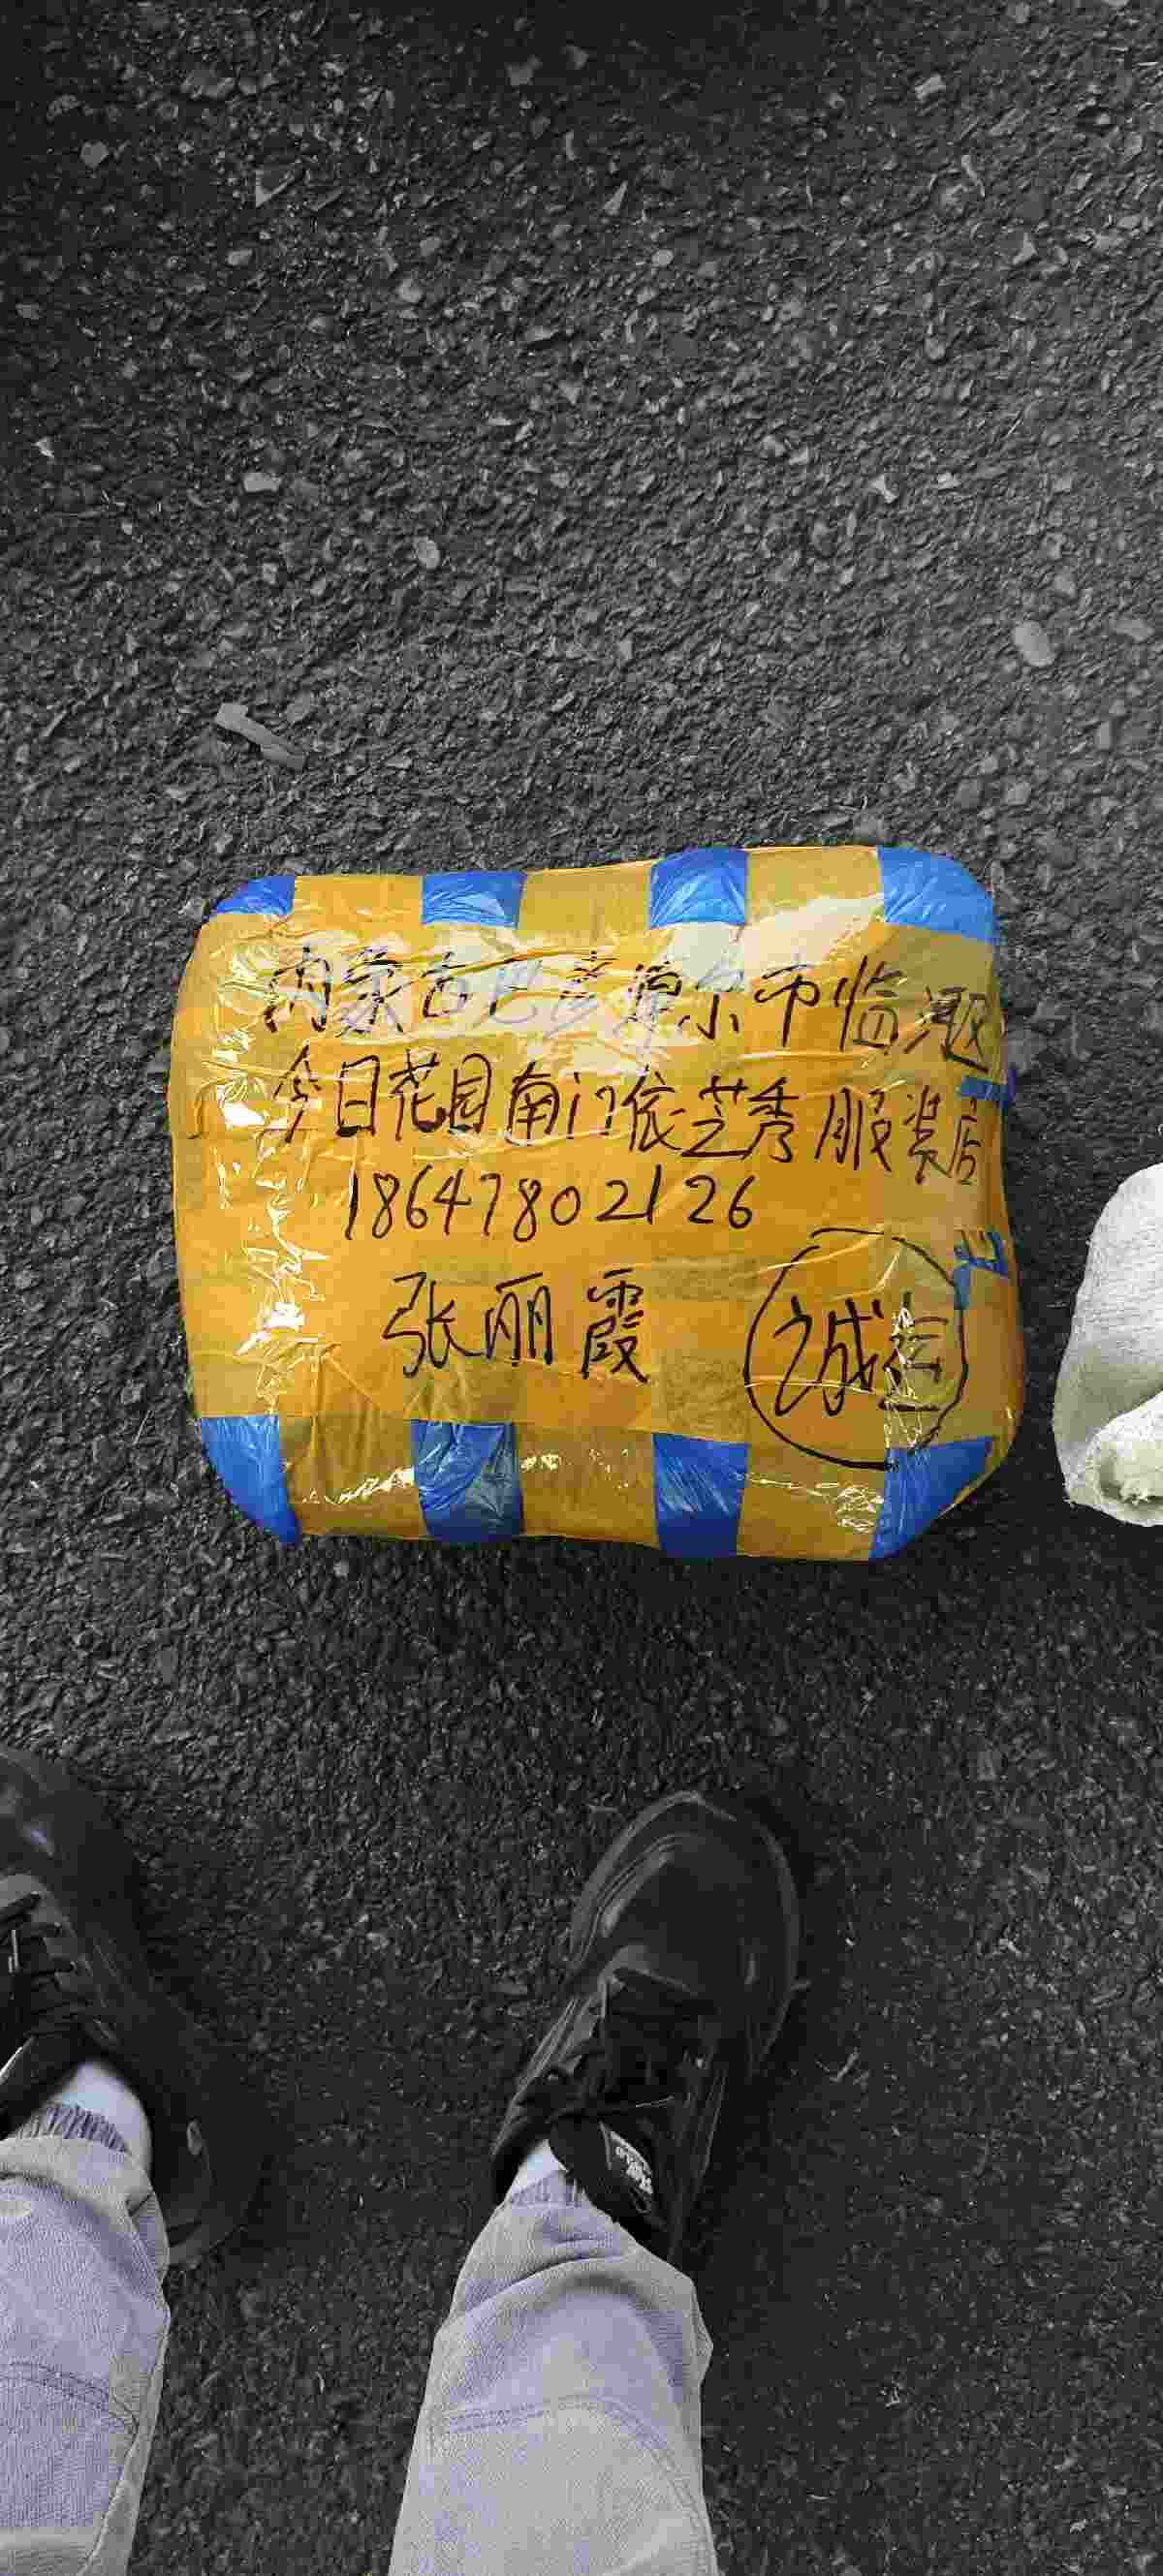 内蒙古巴彦淖尔市临河区
今日花园南门依芝秀服装店
18647802126
张丽霞
诚